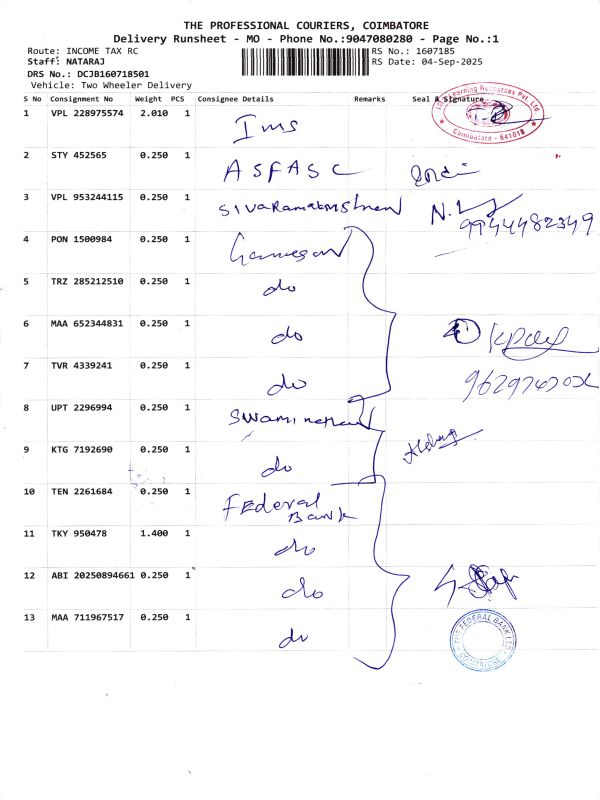 THE PROFESSIONAL COURIERS, COIMBATORE
Delivery Runsheet - MO - Phone No.:9047080280 - Page No.:1
Route: INCOME TAX RC RS No.: 1607185
Staff: NATARAJ RS Date: 04-Sep-2025
DRS No.: DCJB160718501
Vehicle: Two Wheeler Delivery
S No Consignment No Weight PCS Consignee Details Remarks Seal & Signature
1 VPL 228975574 2.010 1 Ims
Learning Resources Pvt. Ltd.
Coimbatore - 641018
2 STY 452565 0.250 1 ASFASC
3 VPL 953244115 0.250 1
9944482349
4 PON 1500984 0.250 1
5 TRZ 285212510 0.250 1 do
6 MAA 652344831 0.250 1 do
7 TVR 4339241 0.250 1 do
8 UPT 2296994 0.250 1
9 KTG 7192690 0.250 1 do
10 TEN 2261684 0.250 1 FEderal
Bank
11 TKY 950478 1.400 1 do
12 ABI 20250894661 0.250 1 do
13 MAA 711967517 0.250 1 do
THE FEDERAL BANK LTD.
COIMBATORE